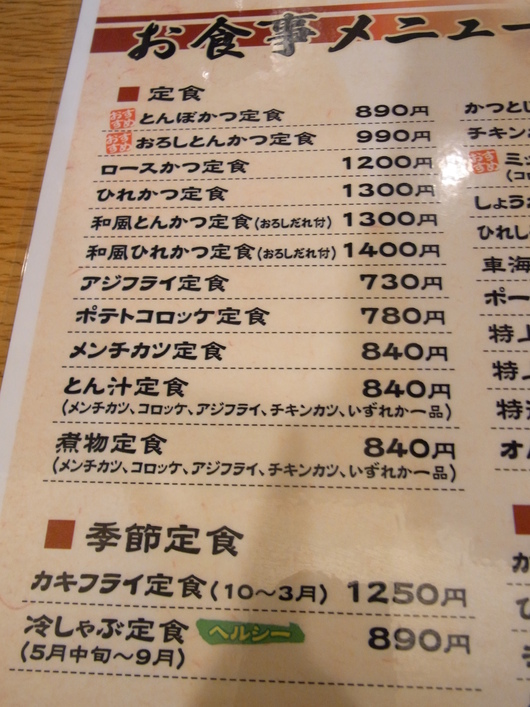 お食事メニュー
■ 定食
おすすめ とんぼかつ定食 890円
おすすめ おろしとんかつ定食 990円
ロースかつ定食 1200円
ひれかつ定食 1300円
和風とんかつ定食(おろしだれ付) 1300円
和風ひれかつ定食(おろしだれ付) 1400円
アジフライ定食 730円
ポテトコロッケ定食 780円
メンチカツ定食 840円
とん汁定食 840円
(メンチカツ、コロッケ、アジフライ、チキンカツ、いずれか一品)
煮物定食 840円
(メンチカツ、コロッケ、アジフライ、チキンカツ、いずれか一品)
■ 季節定食
カキフライ定食(10〜3月) 1250円
冷しゃぶ定食 ヘルシー 890円
(5月中旬〜9月)
かつとじ
チキン
おすすめ ミッ
(コロ
しょう
ひれし
車海
ポー
特上
特上
特
オ